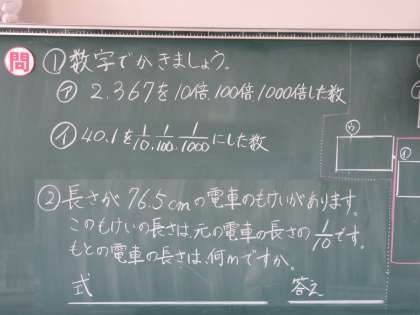 問
①数字でかきましょう。
㋐ 2.367を10倍、100倍、1000倍した数
㋑ 40.1を1/10、1/100、1/1000にした数
②長さが76.5cmの電車のもけいがあります。
このもけいの長さは、元の電車の長さの1/10です。
もとの電車の長さは、何mですか。
式
答え